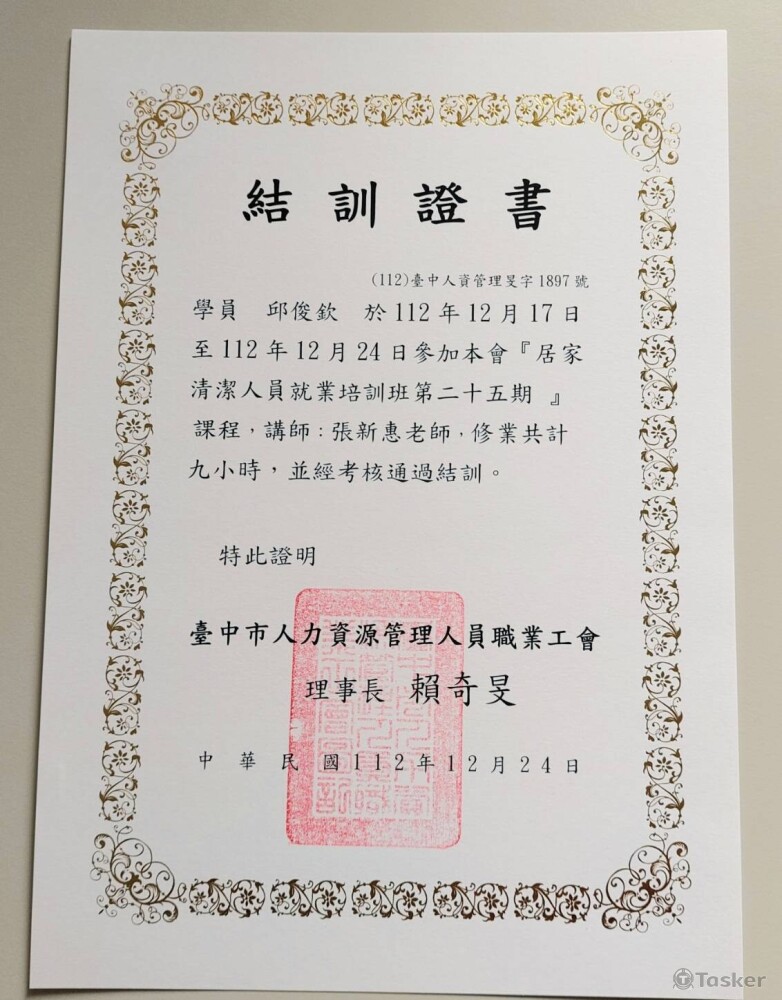 結訓證書
(112)臺中人資管理旻字1897號
學員 邱俊欽 於112年12月17日
至112年12月24日參加本會『居家
清潔人員就業培訓班第二十五期 』
課程，講師：張新惠老師，修業共計
九小時，並經考核通過結訓。
特此證明
臺中市人力資源管理人員職業工會
理事長 賴奇旻
中華民國112年12月24日
Tasker